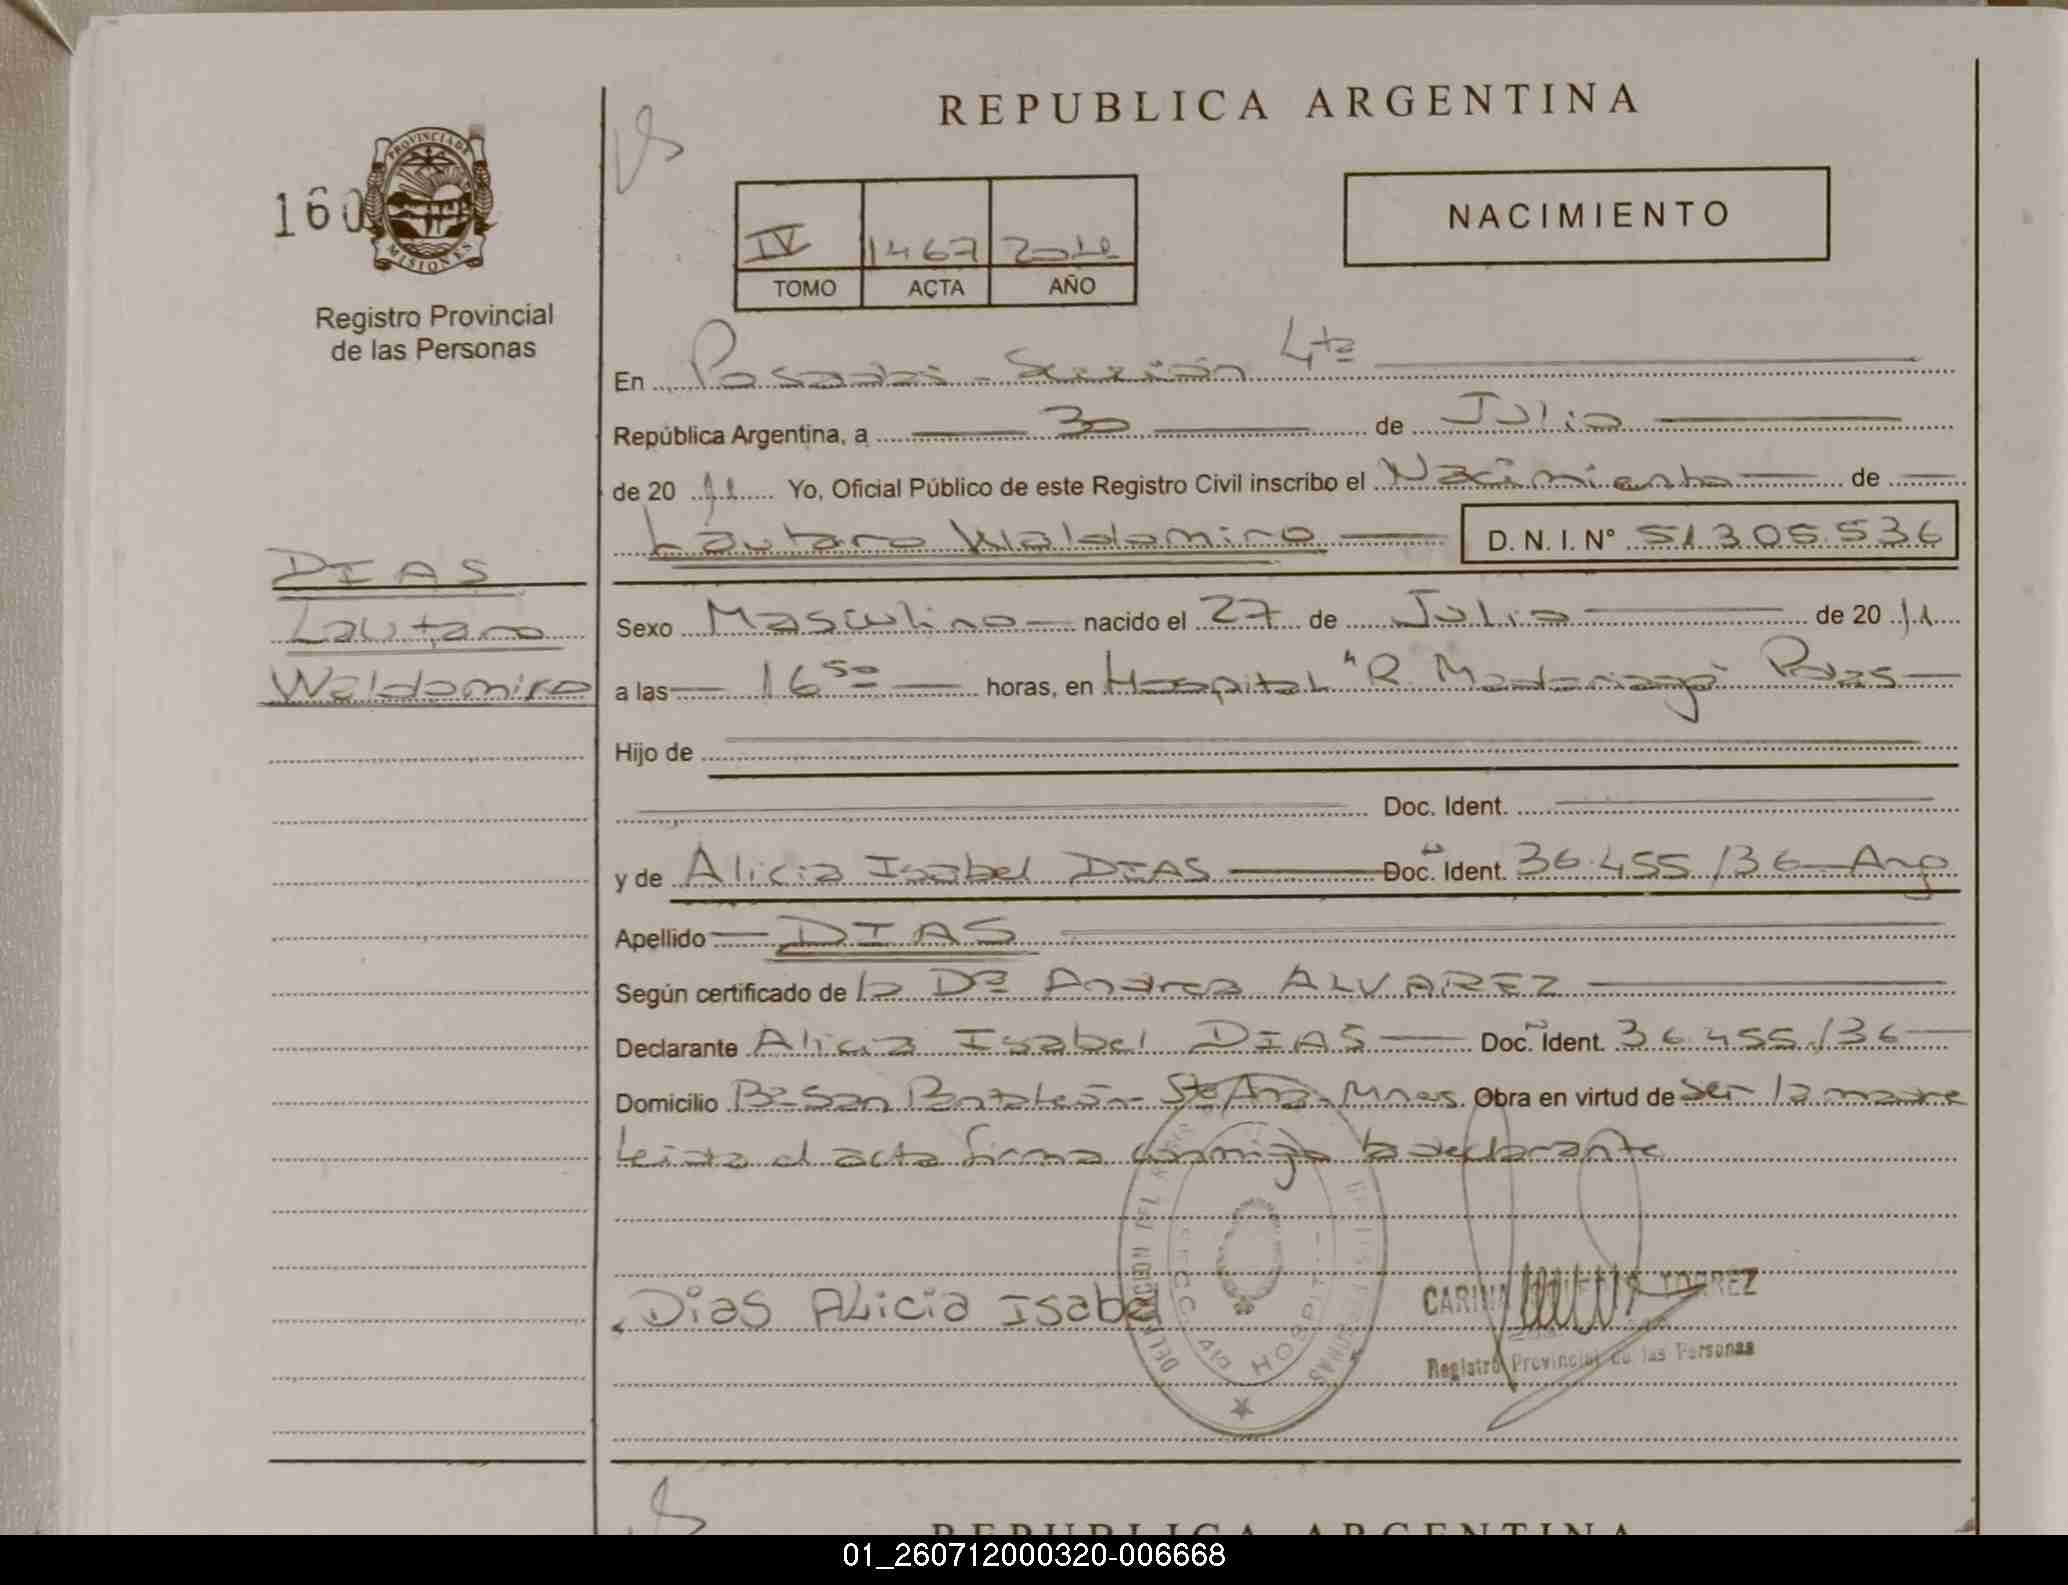 REPUBLICA ARGENTINA
PROVINCIA DE
MISIONES
160
Registro Provincial
de las Personas
NACIMIENTO
IV 1467
TOMO ACTA AÑO
En Posadas - Sección 4ta
República Argentina, a 30 de Julio
de 20 11 Yo, Oficial Público de este Registro Civil inscribo el Nacimiento de
Lautaro Waldomiro D. N. I. N° 51.305.536
DIAS
Lautaro
Waldomiro
Sexo Masculino nacido el 27 de Julio de 20 11
a las 16 50 horas, en Hospital "R. Madariaga" Pdas
Hijo de
Doc. Ident.
y de Alicia Isabel DIAS Doc. Ident. 36.455.136 Arg
Apellido DIAS
Según certificado de la Dra Andrea ALVAREZ
Declarante Alicia Isabel DIAS Doc. Ident. 36.455.136
Domicilio Bº San Pantaleón - Sta Ana - Mnes. Obra en virtud de ser la madre
Leida el acta firma conmigo la declarante
Dias ALicia Isabel
CARINA TORREZ
Registro Provincial de las Personas
HOSPIT
REPUBLICA ARGENTINA
01_260712000320-006668